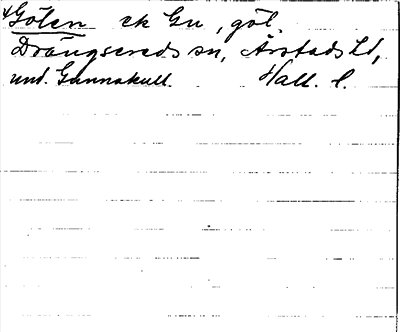 Gölen ek Gu, göl,
Drängsereds sn, Årstads hd,
und. Gunnakull. Hall. l.